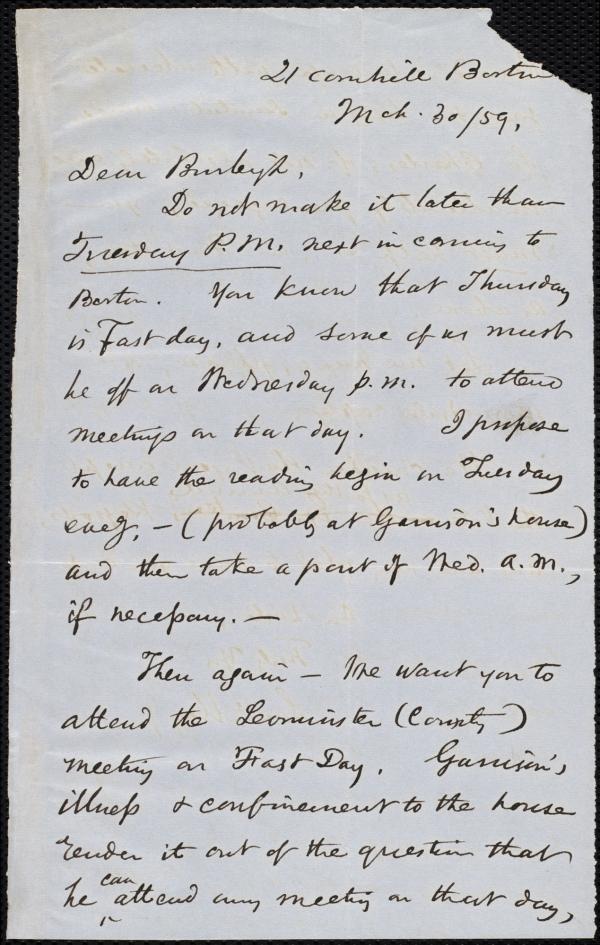 21 Cornhill Boston
Mch. 30/59,
Dear Burleigh,
Do not make it later than
Tuesday P.M. next in coming to
Boston. You know that Thursday
is Fast day, and some of us must
be off on Wednesday p.m. to attend
meetings on that day. I propose
to have the reading begin on Tuesday
eveg, – (probably at Garrison's house)
and then take a part of Wed. a.m.,
if necessary. –
Then again – We want you to
attend the Leominster (County)
meeting on Fast Day. Garrison's
illness & confinement to the house
render it out of the question that
he can attend any meeting on that day,